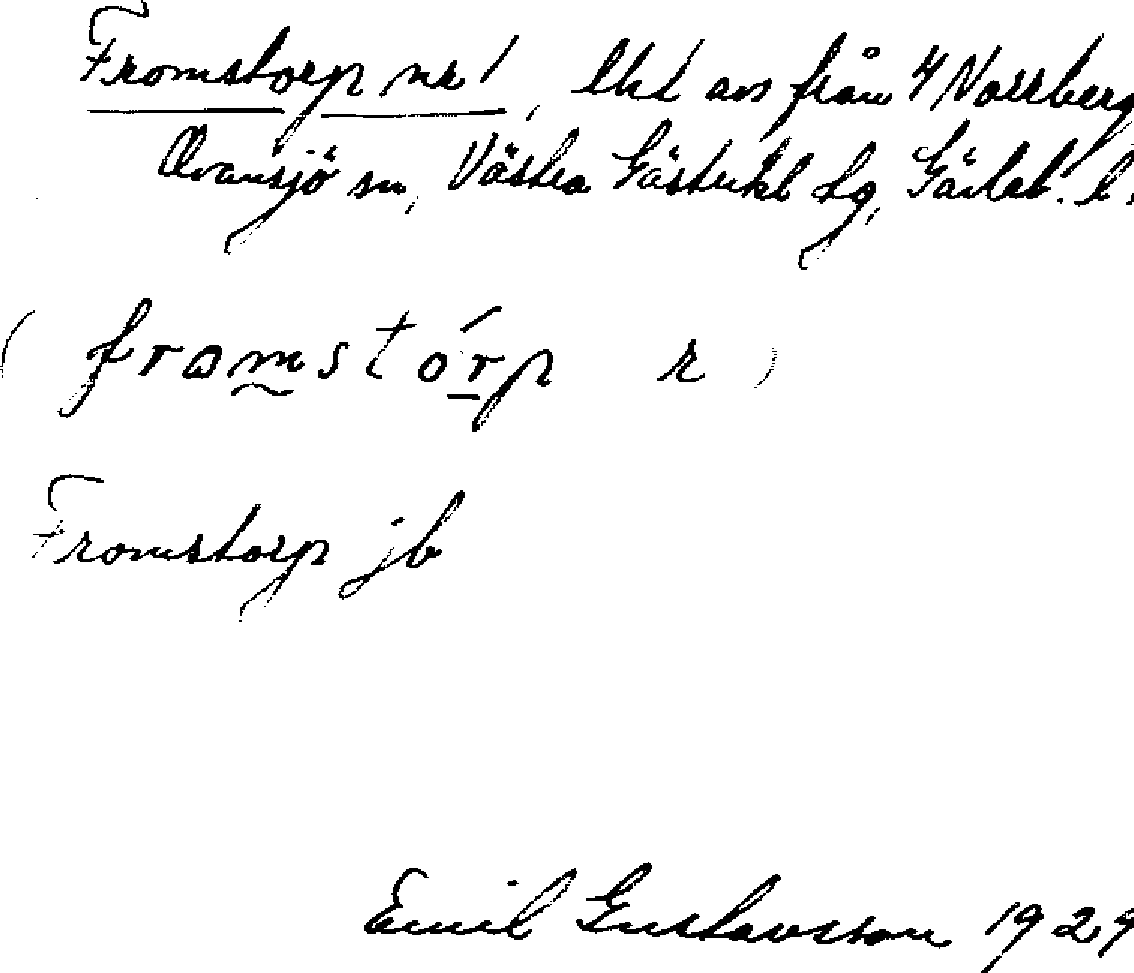 Fromstorp nr 1, lht avs från 4 Norrberg
Ovansjö sn, Västra Gästrikl dg, Gävleb. l.
( fromstórp r )
Fromstorp jb
Emil Gustavsson 1929